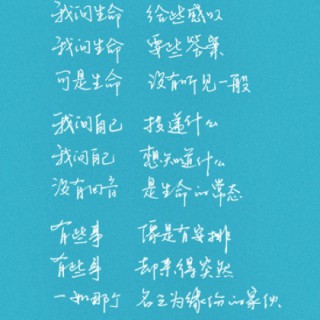 我问生命 给些感叹
我问生命 要些答案
可是生命 没有听见一般
我问自己 投递什么
我问自己 想知道什么
没有回音 是生命的常态
有些事 像是有安排
有些事 却来得突然
一如那个 名立为缘份的家伙